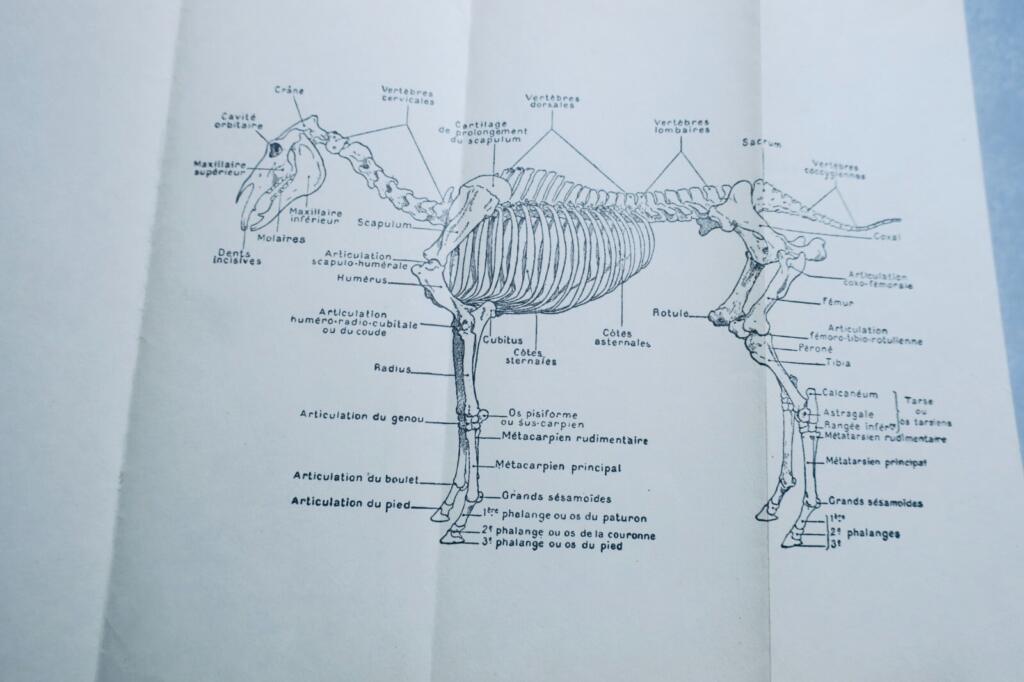 Crâne
Vertèbres
cervicales
Vertèbres
dorsales
Cavité
orbitaire
Cartilage
de prolongement
du scapulum
Vertèbres
lombaires
Sacrum
Maxillaire
supérieur
Vertèbres
coccygiennes
Maxillaire
inférieur
Scapulum
Molaires
Coxal
Dents
incisives
Articulation
scapulo-humérale
Humérus
Articulation
coxo-fémorale
Fémur
Articulation
huméro-radio-cubitale
ou du coude
Rotule
Cubitus
Côtes
sternales
Côtes
asternales
Articulation
fémoro-tibio-rotulienne
Péroné
Tibia
Radius
Calcanéum
Astragale
Rangée infér.
Tarse
ou
os tarsiens
Métatarsien rudimentaire
Articulation du genou
Os pisiforme
ou sus-carpien
Métacarpien rudimentaire
Métacarpien principal
Métatarsien principal
Articulation du boulet
Articulation du pied
Grands sésamoïdes
1ère phalange ou os du paturon
2e phalange ou os de la couronne
3e phalange ou os du pied
Grands sésamoïdes
1ère
2e phalanges
3e